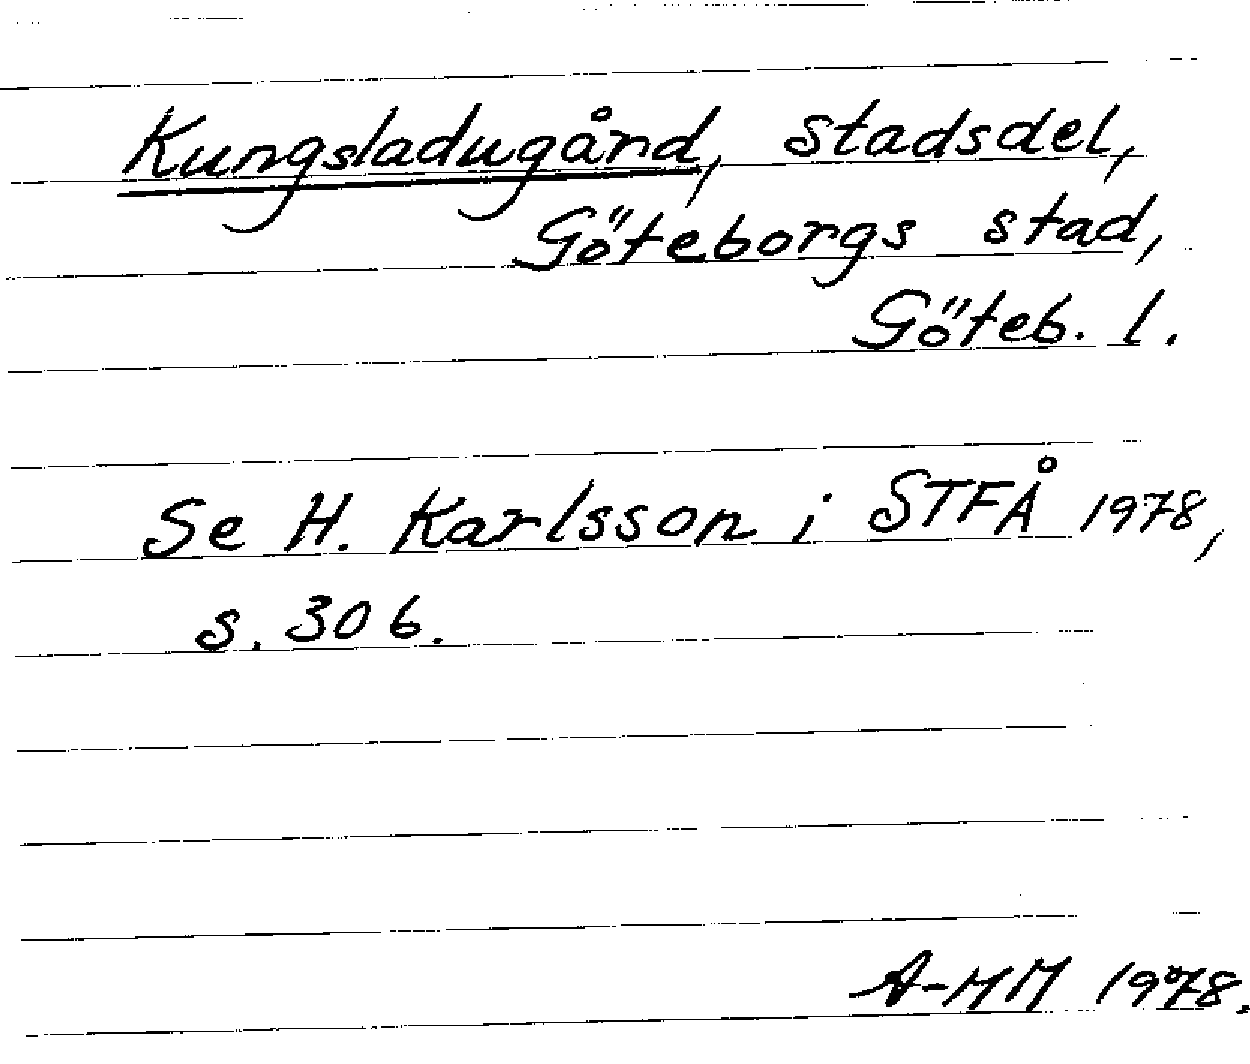 Kungsladugård, stadsdel,
Göteborgs stad,
Göteb. l.
Se H. Karlsson i STFÅ 1978,
s. 306.
A-MM 1978.